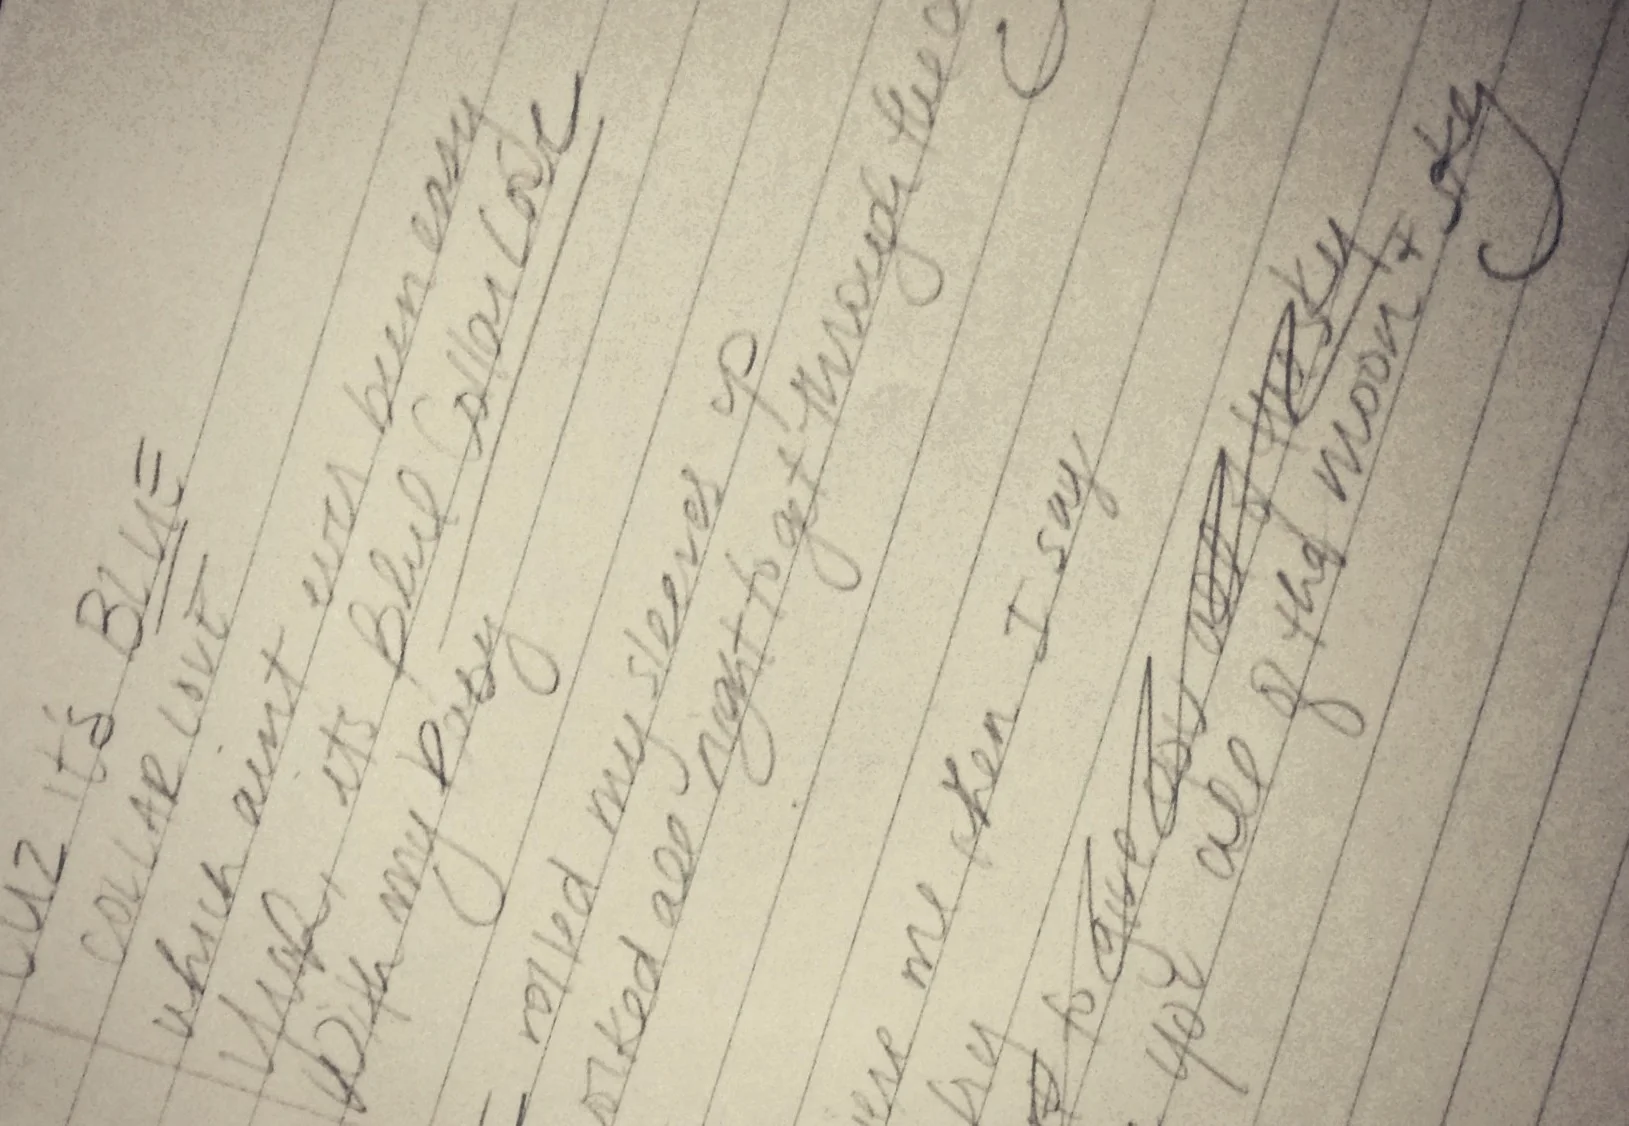 cuz it's BLUE
COLLAR LOVE
which aint ever been easy
Yeah, its Blue Collar Love
With my Baby
rolled my sleeves up
orked all night to get through
me when I say
try
to give
you all of the moon + sky